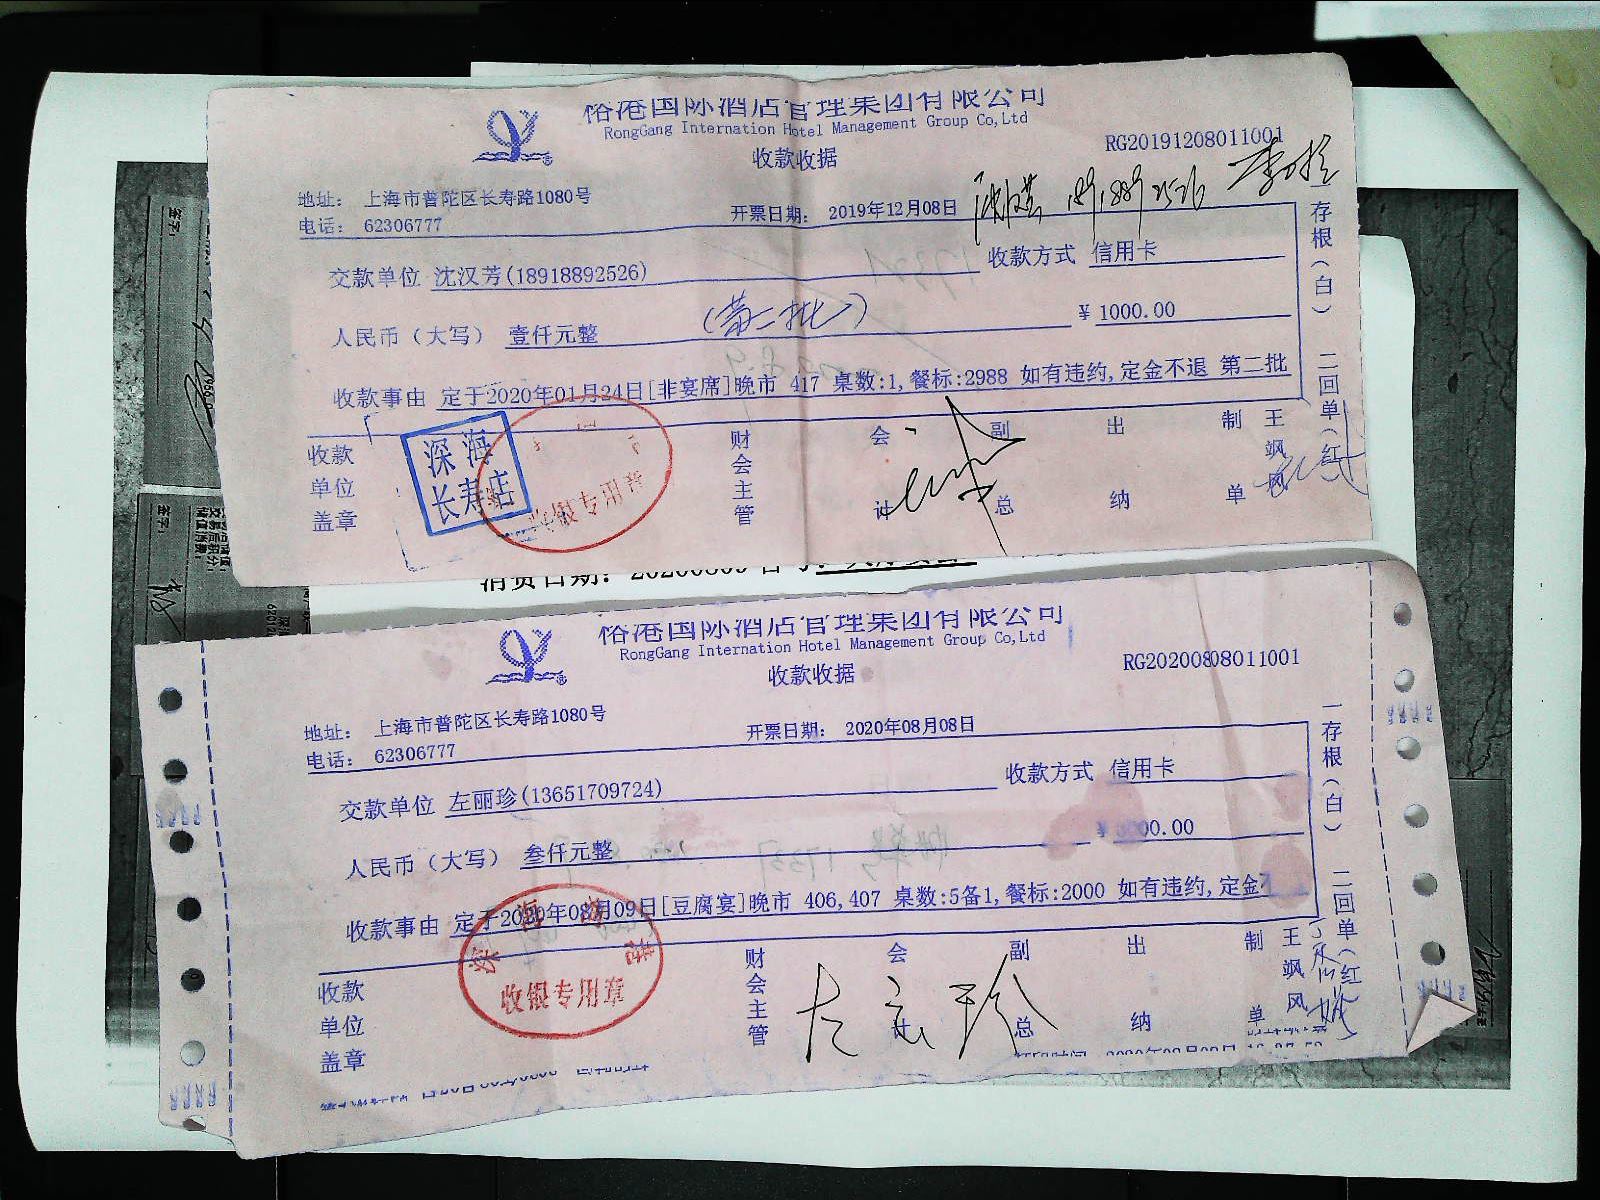 裕港国际酒店管理集团有限公司
RongGang Internation Hotel Management Group Co,Ltd
收款收据
RG20191208011001
地址： 上海市普陀区长寿路1080号
电话： 62306777
开票日期： 2019年12月08日
交款单位 沈汉芳(18918892526)
收款方式 信用卡
人民币（大写） 壹仟元整
（第二批）
¥ 1000.00
收款事由 定于2020年01月24日[非宴席]晚市 417 桌数:1,餐标:2988 如有违约,定金不退 第二批
收款单位盖章
深海
长寿店
收银专用章
财会主管
会计
副总
出纳
制单
王飒风
一存根（白） 二回单（红）
消费日期：
裕港国际酒店管理集团有限公司
RongGang Internation Hotel Management Group Co,Ltd
收款收据
RG20200808011001
地址： 上海市普陀区长寿路1080号
电话： 62306777
开票日期： 2020年08月08日
交款单位 左丽珍(13651709724)
收款方式 信用卡
人民币（大写） 叁仟元整
00.00
收款事由 定于2020年08月09日[豆腐宴]晚市 406,407 桌数:5备1,餐标:2000 如有违约,定金不
收款单位盖章
收银专用章
财会主管
会计
副总
出纳
制单
王飒风
一存根（白） 二回单（红）